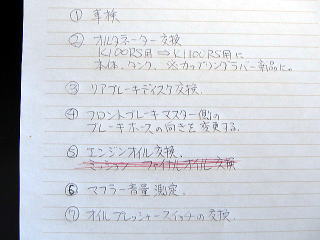 ① 車検
② オルタネーター交換
K100RS用 ⇒ K1100RS用に
本体、タンク、※カップリングラバー新品に。
③ リアブレーキディスク交換.
④ フロントブレーキマスター側の
ブレーキホースの向きを変更する.
⑤ エンジンオイル交換.
ミッション ファイナルオイル交換
⑥ マフラー音量測定.
⑦ オイルプレッシャースイッチの交換.